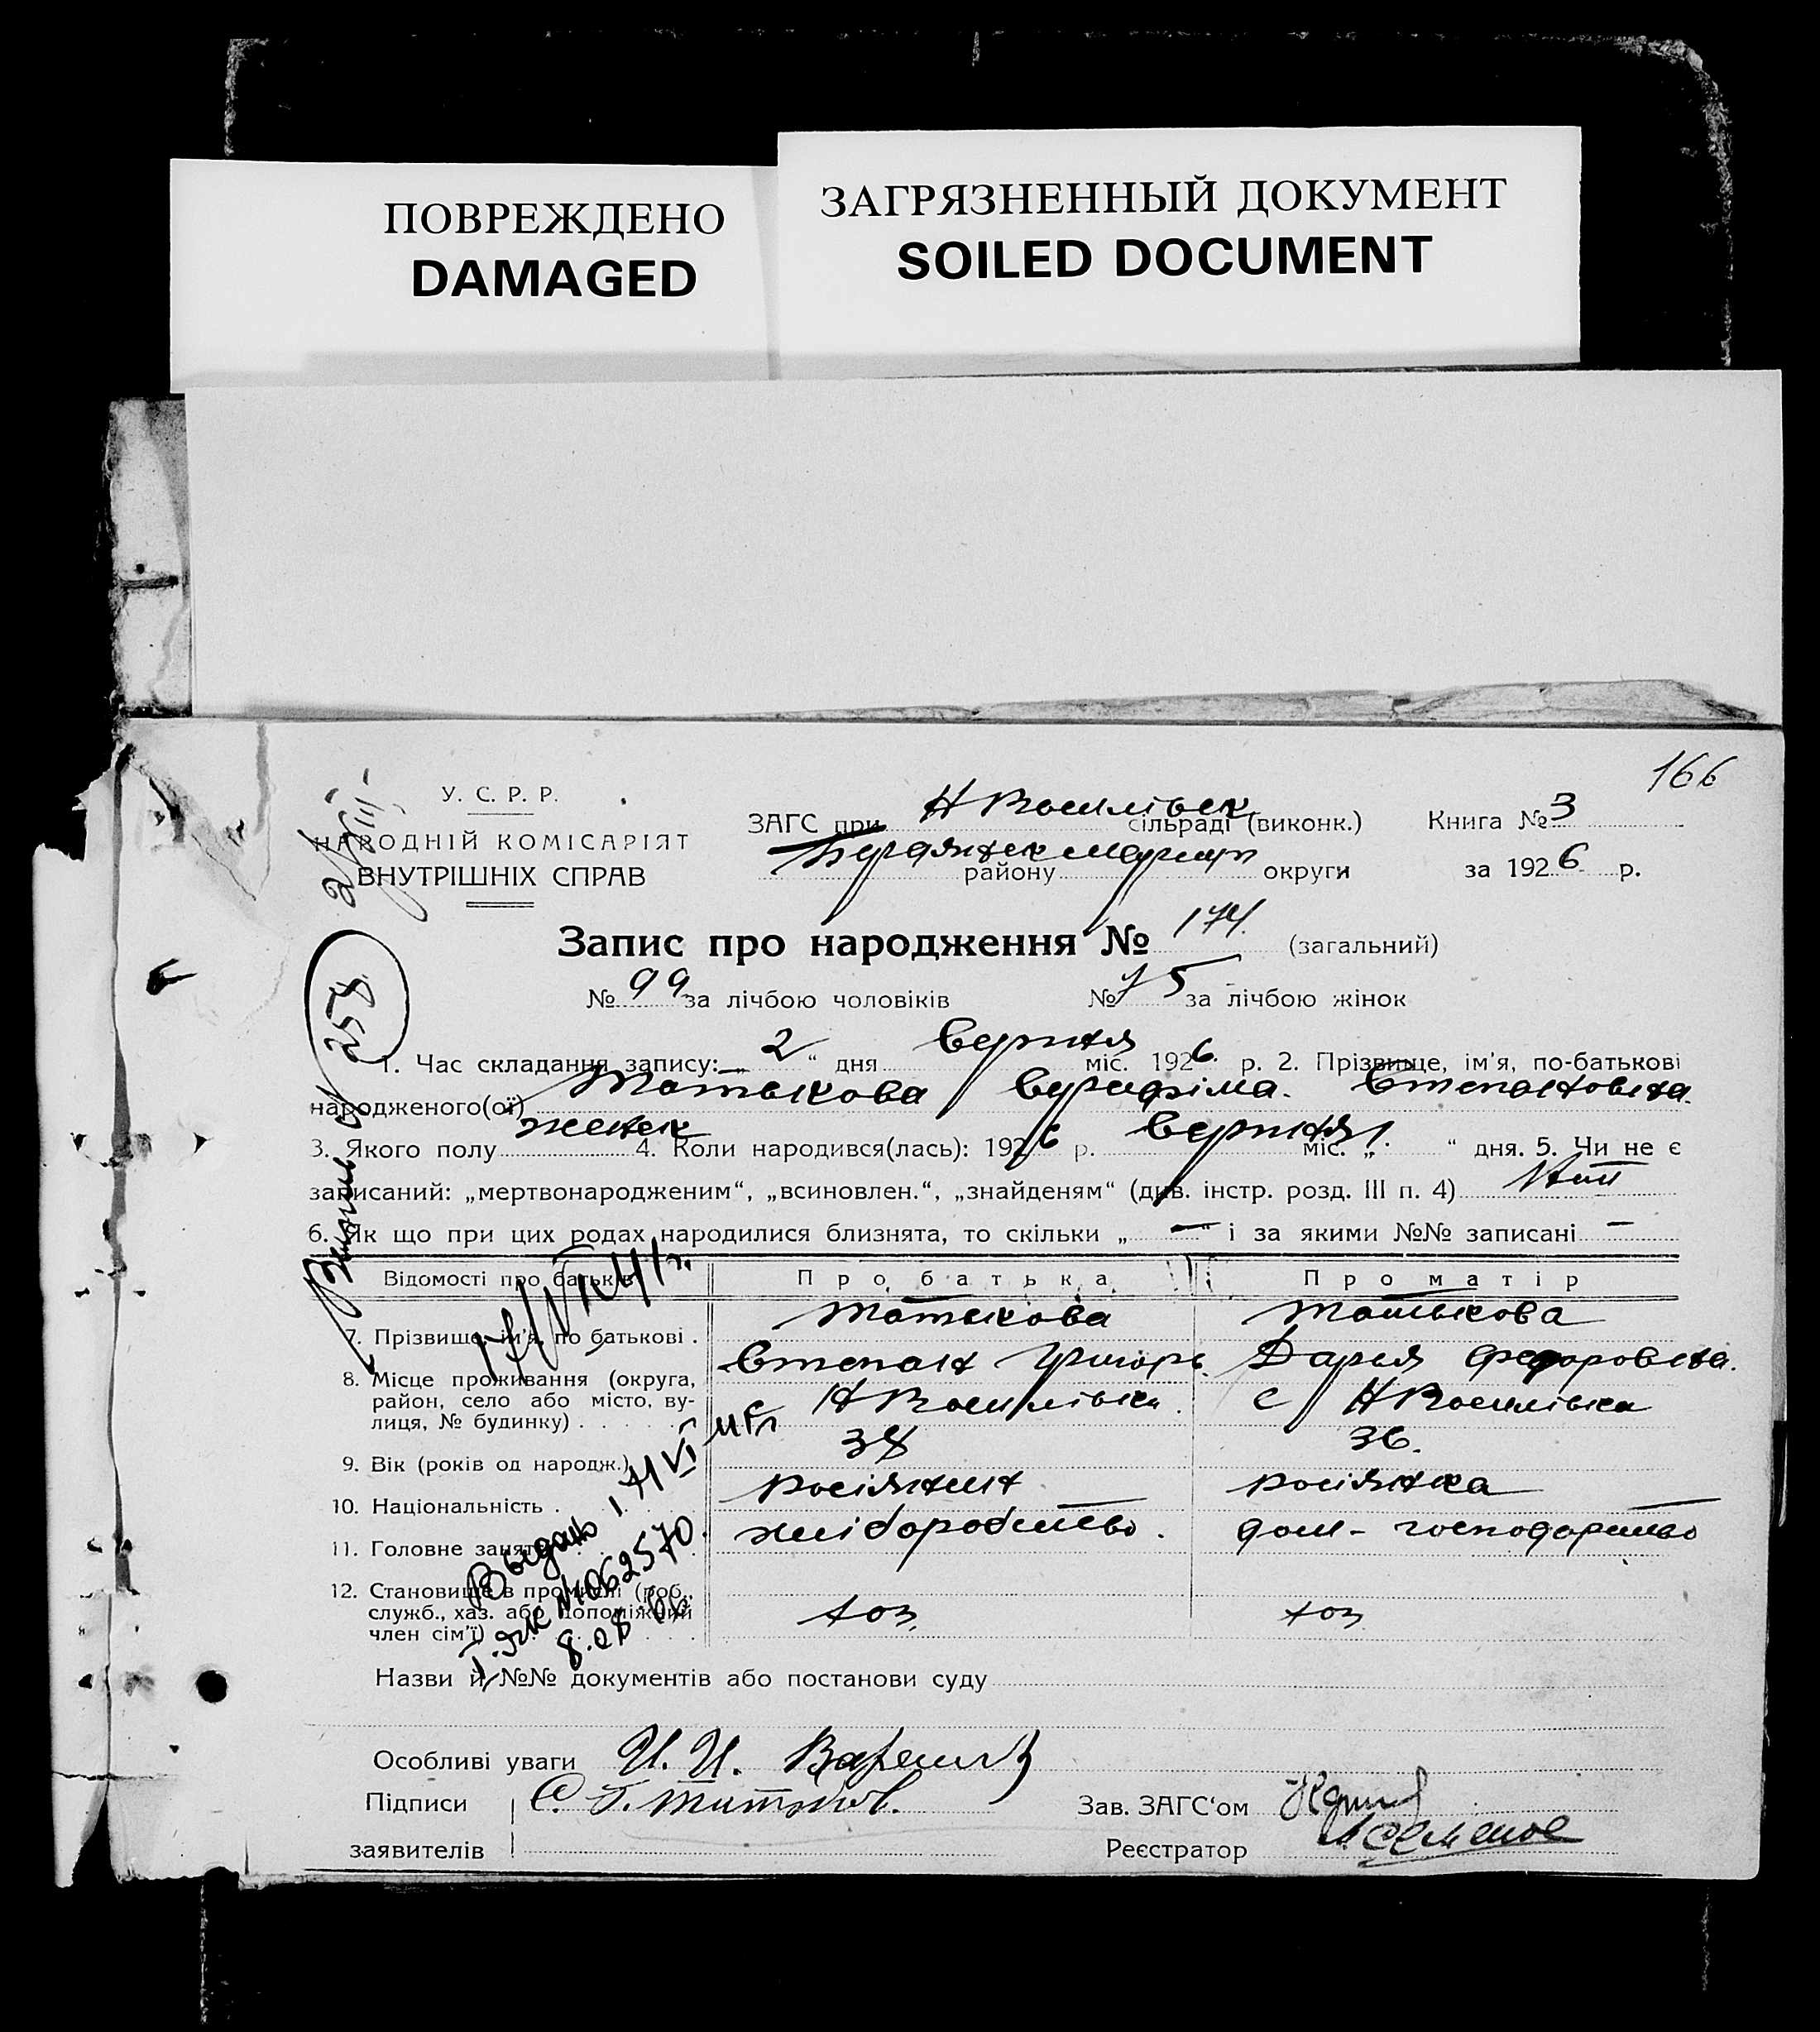 ПОВРЕЖДЕНО
DAMAGED
ЗАГРЯЗНЕННЫЙ ДОКУМЕНТ
SOILED DOCUMENT
166
У. С. Р. Р.
НАРОДНІЙ КОМІСАРІЯТ
ВНУТРІШНІХ СПРАВ
ЗАГС при Н Василівськ сільраді (виконк.)
Бердянськ району округи
Книга № 3
за 1926 р.
Запис про народження № 174. (загальний)
№ 99 за лічбою чоловіків № 75 за лічбою жінок
1. Час складання запису: „ 2 “ дня Версня міс. 1926. р. 2. Прізвище, ім'я, по-батькові
народженого(ої) Серафіма. Степановна.
3. Якого полу женск 4. Коли народився(лась): 1926 р. Версня міс. „ 1. “ дня. 5. Чи не є
записаний: „мертвонародженим“, „всиновлен.“, „знайденям“ (див. інстр. розд. III п. 4) Ні
6. Як що при цих родах народилися близнята, то скільки „ — “ і за якими №№ записані —
Відомості про батьків Про батька Про матір
7. Прізвище, ім'я, по батькові . Степан Григорь. Дарья Федоровна.
8. Місце проживання (округа, район, село або місто, вулиця, № будинку) с Н Василівка. с Н Василівка
9. Вік (років од народж.) 38 36.
10. Національність . росіянин росіянка
11. Головне заняття хліборобство. дом- господарство
12. Становище в промислі (роб., служб., хаз. або допоміжний член сім'ї) хоз. хоз.
Выдань
№ 062570.
Назви й №№ документів або постанови суду
Особливі уваги И. И.
Підписи С. Г. Титьков.
заявителів
Зав. ЗАГС‘ом
Реєстратор